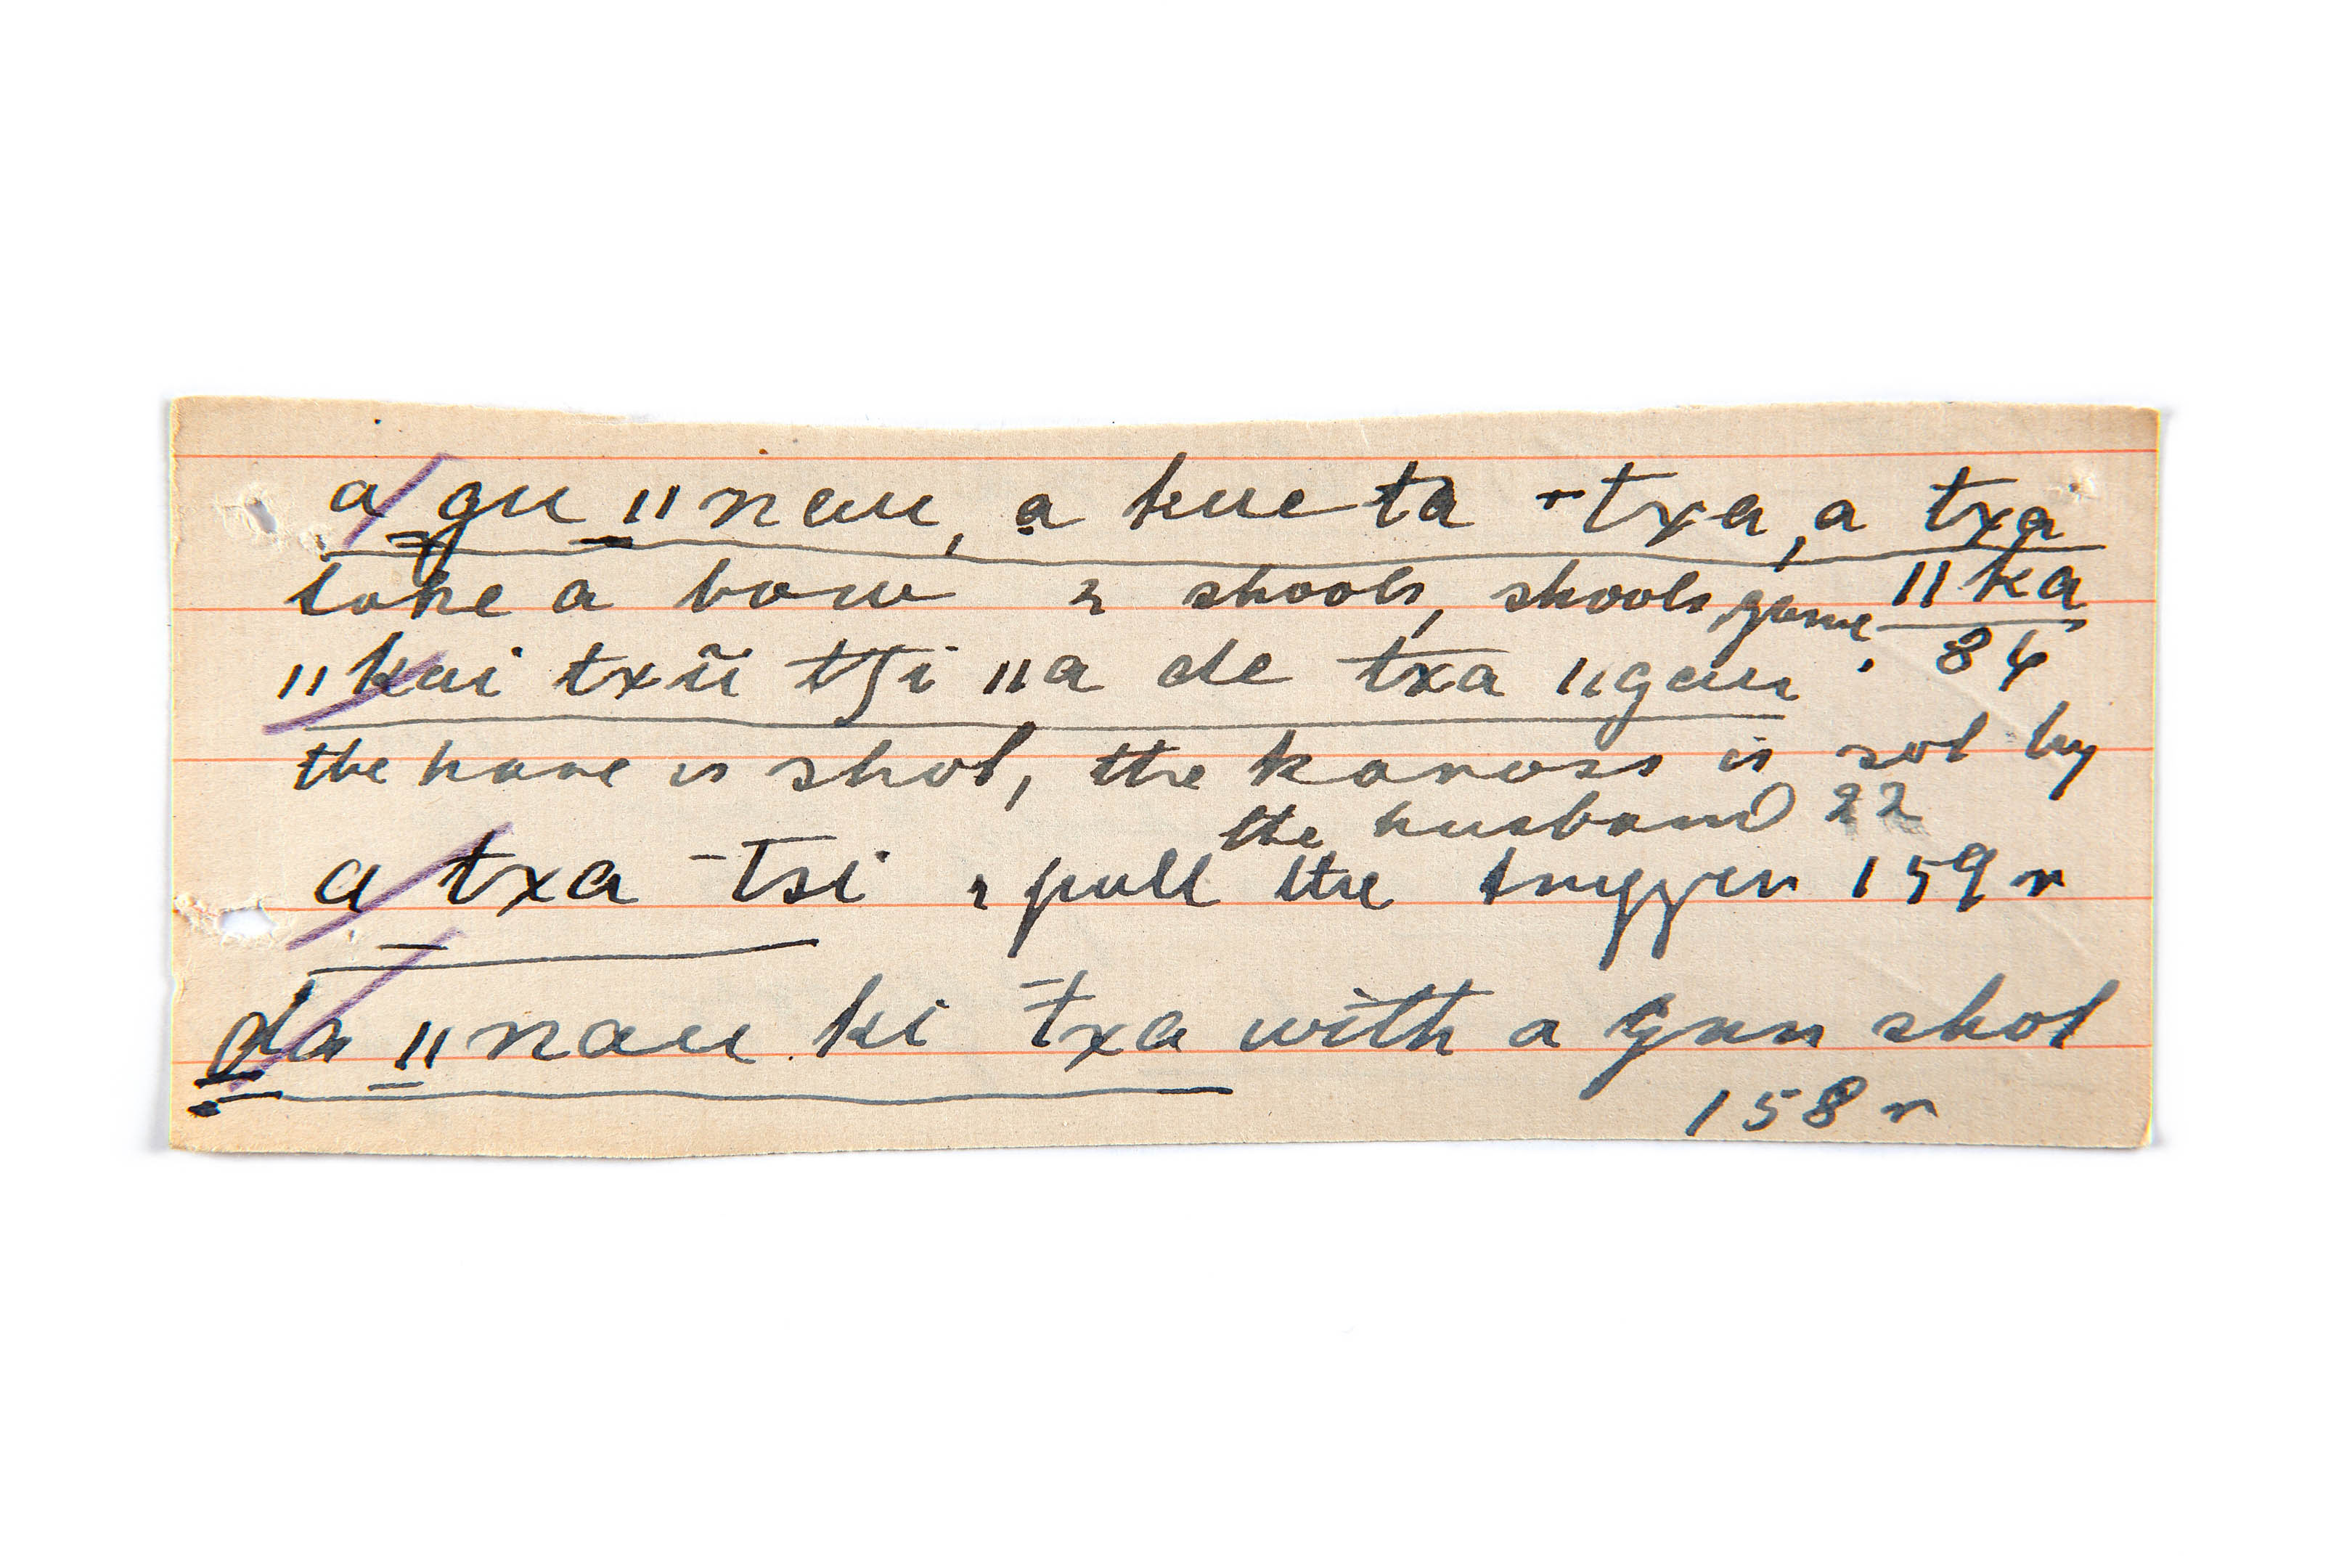 a gu ǁnau, a kue ta ⁻txa, a txa
take a bow & shoots, shoots game ǁka
ǁkai txũ tʃi ǁa de txa ǁgau . 84
the hare is shot, the kaross is sot by
the husband 22
a txa ⁻tsi , pull the trigger 159 r
da ǁnau ki ⁻txa with a gun shot
158 r